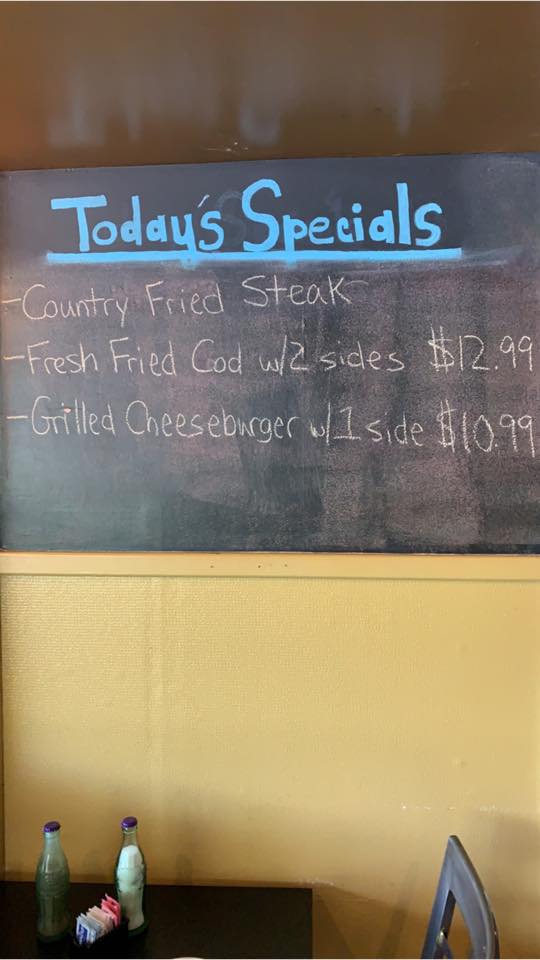 Today's Specials
-Country Fried Steak
-Fresh Fried Cod w/2 sides $12.99
-Grilled Cheeseburger w/1 side $10.99